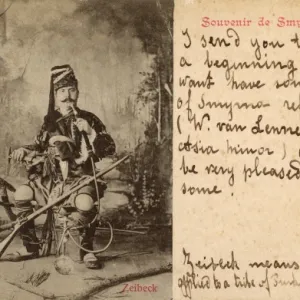 Souvenir de Smy
I send you t
a beginning
want have so
of Smyrna re
(W. van Lenne
Asia minor)
be very pleased
some.
Zeibeck
Zeibeck means
applied to a tribe of